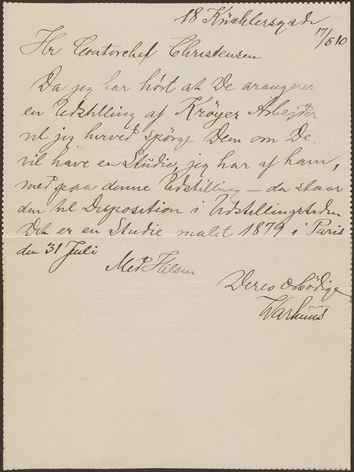 18 Küchlersgade
17/5 10
Hr Contorchef Christensen
Da jeg har hørt at De arangerer
en Udstilling af Krøyer Arbejder
vil jeg herved spørge Dem om De
vil have en Studie, jeg har af ham,
med paa denne Udstilling – den staar
den til Disposition i Udstillingstiden
Det er en Studie malet 1879 i Paris
den 31 Juli
Med Hilsen
Deres ærbødige